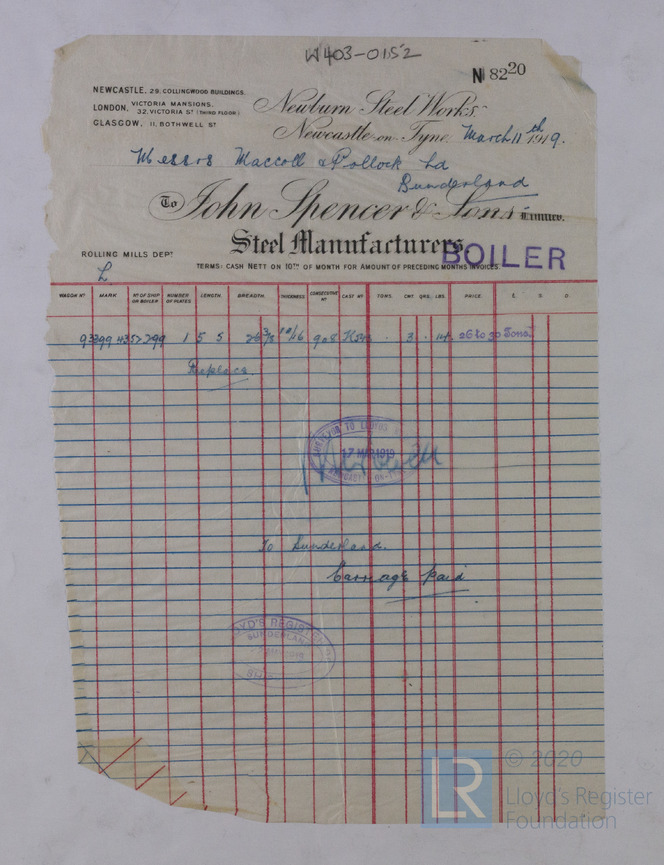 W403-0152
No 8220
NEWCASTLE. 29, COLLINGWOOD BUILDINGS.
LONDON. VICTORIA MANSIONS. 32, VICTORIA ST (THIRD FLOOR)
GLASGOW. 11, BOTHWELL ST
Newburn Steel Works
Newcastle on Tyne March 11th 1919.
Messrs Maccoll & Pollock Ld
Sunderland
To John Spencer & Sons Limited.
Steel Manufacturers
BOILER
ROLLING MILLS DEPT
TERMS: CASH NETT ON 10TH OF MONTH FOR AMOUNT OF PRECEDING MONTHS INVOICES.
L
WAGON NO MARK NO OF SHIP OR BOILER NUMBER OF PLATES LENGTH. BREADTH. THICKNESS CONSECUTIVE NO CAST NO TONS. CWT QRS. LBS. PRICE. £ S. D.
1 5 5 26 3/8 908 . 3 . 14 26 to 30 Tons.
Replace
17 MAR 1919
To Sunderland.
Carriage paid
LLOYD'S REGISTER
SUNDERLAND
© 2020
LR Lloyd's Register
Foundation